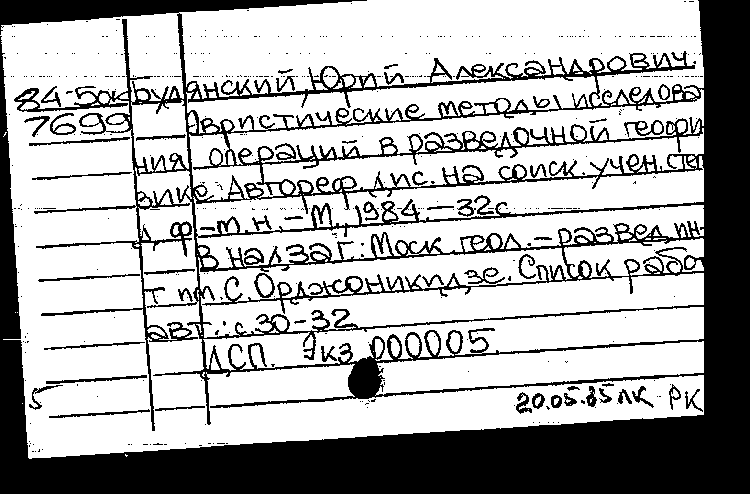 84-5ок Будянский, Юрий Александрович.
7699 Эвристические методы исследова
ния операций в разведочной геофи
зике: Автореф. дис. на соиск. учен. степ
д. ф.-м. н. - М., 1984. - 32с
В надзаг.: Моск. геол.-развед. ин-
т им. С. Орджоникидзе. Список работ
авт.: с. 30-32.
ДСП. Экз 000005.
5
20.05.85 ЛК РК